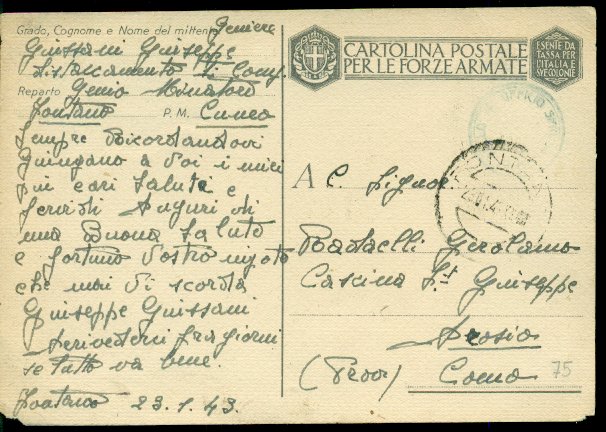 Grado, Cognome e Nome del mittente Geniere
Giussani Guiseppe
Distaccamento Comp.
Reparto Genio Minatori
P. M. Cuneo
Sempre Ricordandovi
giungano a Voi i miei
piu cari saluti e
fervidi Auguri di
una Buona Salute
e fortuna Vostro
che mai Vi scorda
Guiseppe Giussani
Arivederci fra giorni
se tutto va bene.
23.1.43.
CARTOLINA POSTALE
PER LE FORZE ARMATE
ESENTE DA
TASSA PER
L'ITALIA E
SUE COLONIE
A C. Signor
Radaelli Gerolamo
Cascina S. Guiseppe
Arosio
(Prov) Como
75